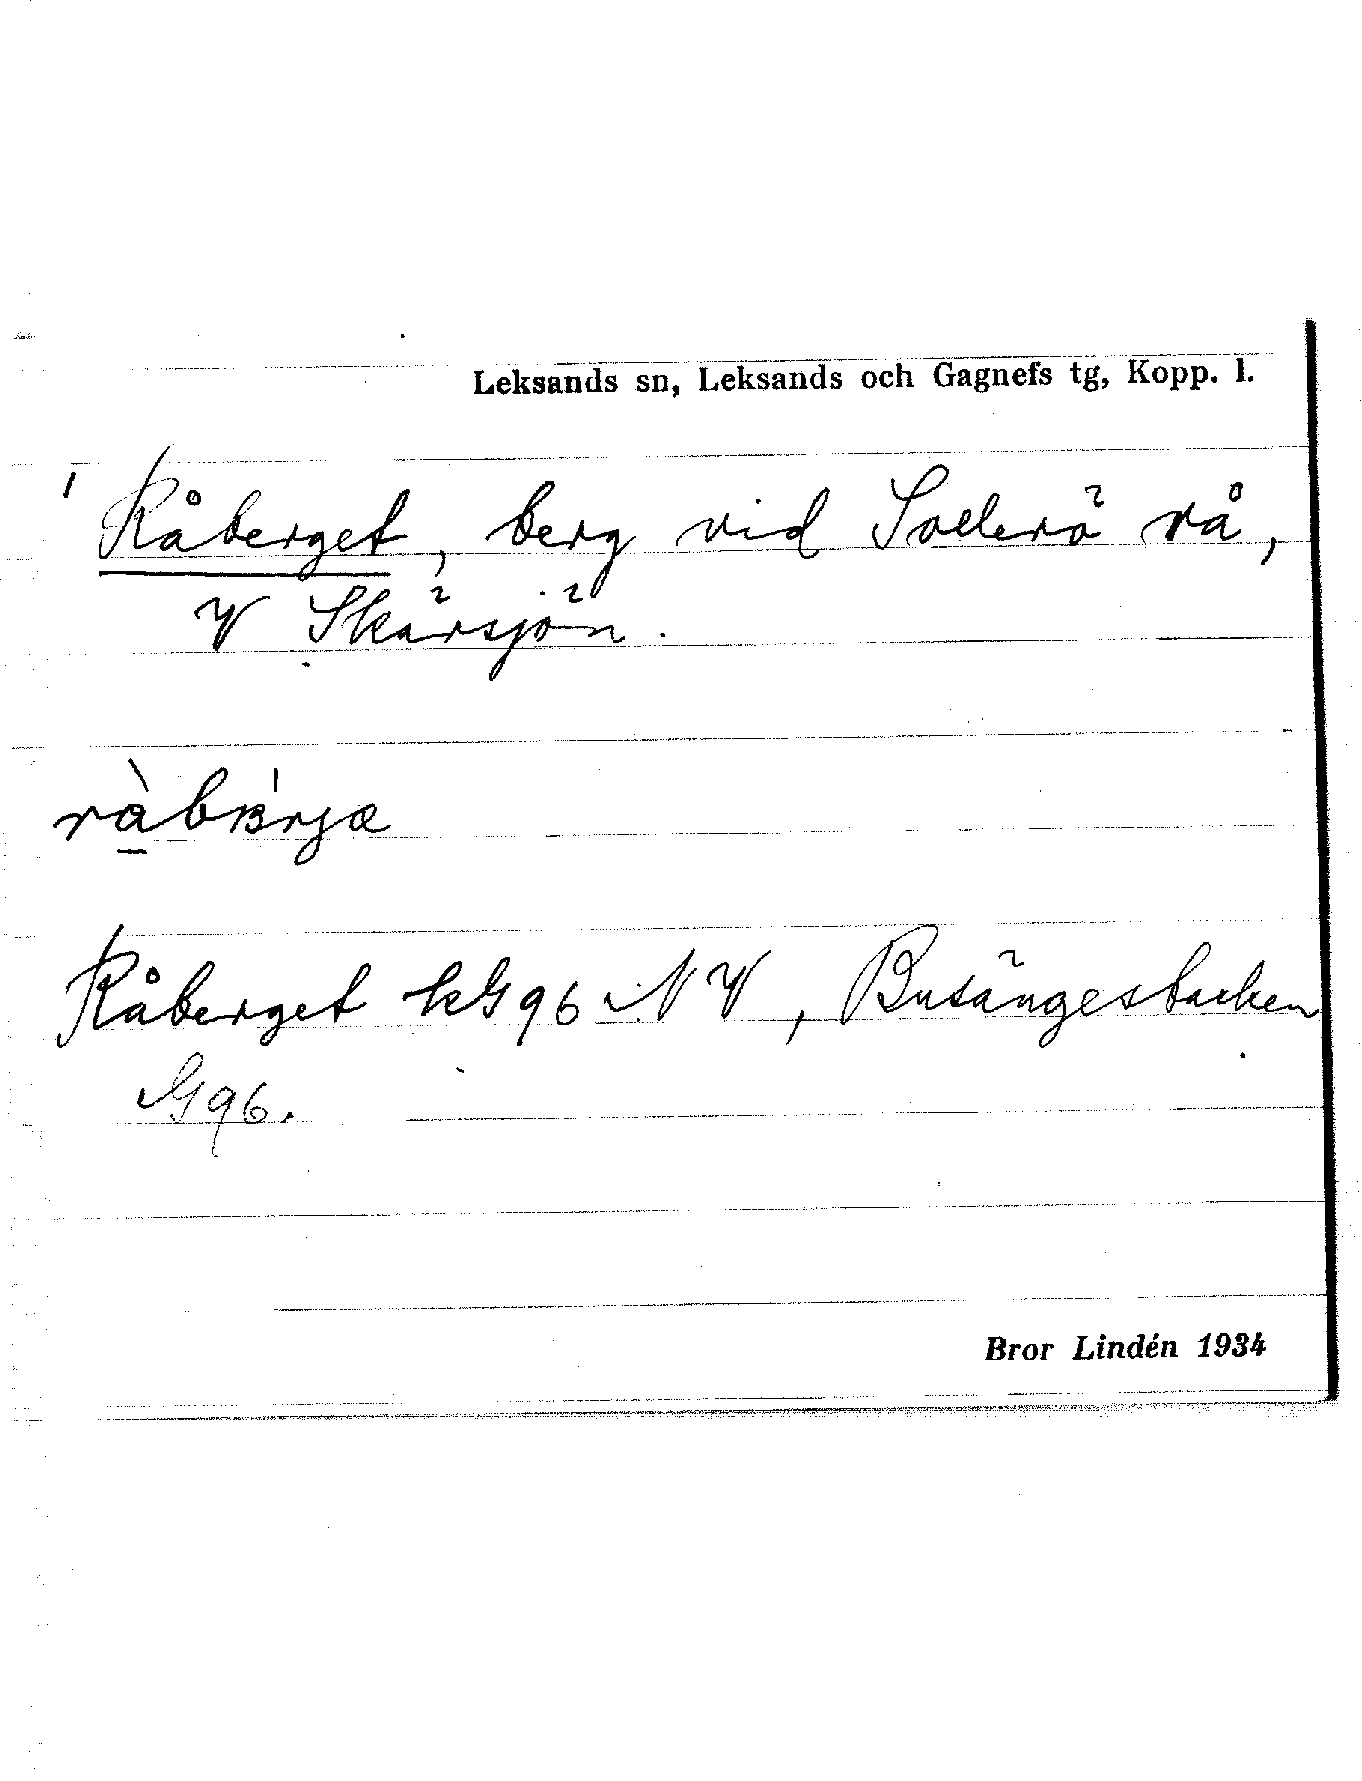 Leksands sn, Leksands och Gagnefs tg, Kopp. l.
1 Råberget, berg vid Sollerö rå,
V Skärsjön.
Råberget kG96 NV, Busängesbacken
G96.
Bror Lindén 1934